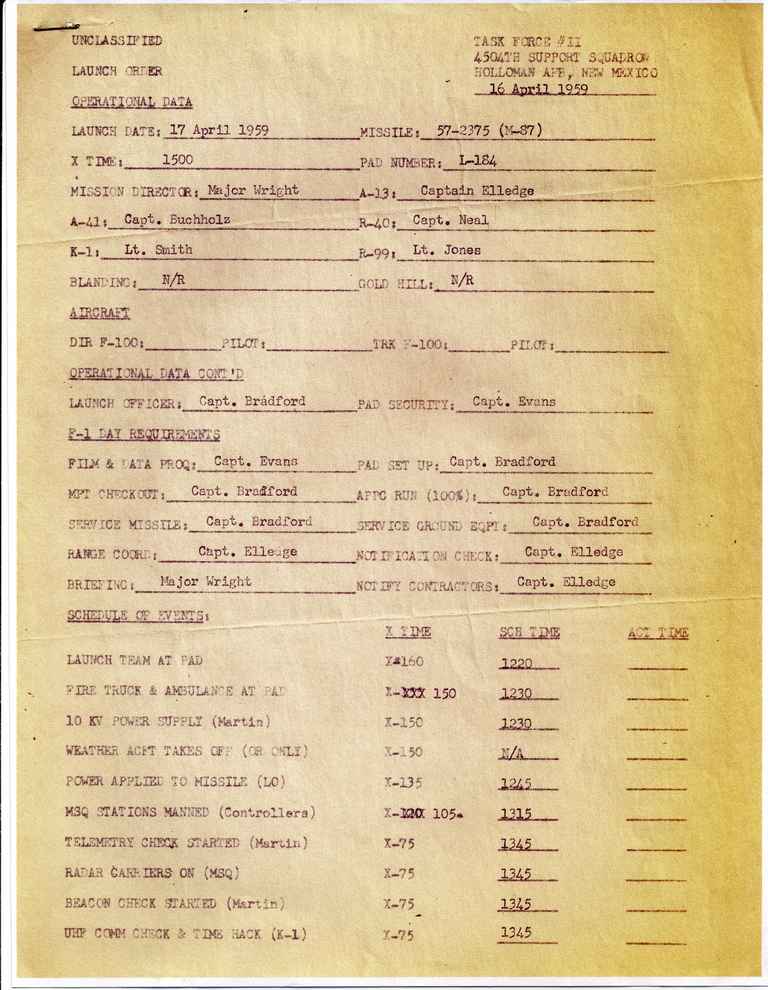 UNCLASSIFIED
TASK FORCE #II
4504TH SUPPORT SQUADRON
LAUNCH ORDER
HOLLOMAN AFB, NEW MEXICO
16 April 1959
OPERATIONAL DATA
LAUNCH DATE: 17 April 1959 MISSILE: 57-2375 (M-87)
X TIME: 1500 PAD NUMBER: L-184
MISSION DIRECTOR: Major Wright A-13: Captain Elledge
A-41: Capt. Buchholz R-40: Capt. Neal
K-1: Lt. Smith R-99: Lt. Jones
BLANDING: N/R GOLD HILL: N/R
AIRCRAFT
DIR F-100: PILOT: TRK F-100: PILOT:
OPERATIONAL DATA CONT'D
LAUNCH OFFICER: Capt. Bradford PAD SECURITY: Capt. Evans
F-1 DAY REQUIREMENTS
FILM & DATA PROQ: Capt. Evans PAD SET UP: Capt. Bradford
MPT CHECKOUT: Capt. Bradford AFPC RUN (100%): Capt. Bradford
SERVICE MISSILE: Capt. Bradford SERVICE GROUND EQPT: Capt. Bradford
RANGE COORD: Capt. Elledge NOTIFICATION CHECK: Capt. Elledge
BRIEFING: Major Wright NOTIFY CONTRACTORS: Capt. Elledge
SCHEDULE OF EVENTS:
X TIME SCH TIME ACT TIME
LAUNCH TEAM AT PAD X-160 1220
FIRE TRUCK & AMBULANCE AT PAD X-XXX 150 1230
10 KV POWER SUPPLY (Martin) X-150 1230
WEATHER ACFT TAKES OFF (OR ONLY) X-150 N/A
POWER APPLIED TO MISSILE (LO) X-135 1245
MSQ STATIONS MANNED (Controllers) X- 105. 1315
TELEMETRY CHECK STARTED (Martin) X-75 1345
RADAR CARRIERS ON (MSQ) X-75 1345
BEACON CHECK STARTED (Martin) X-75 1345
UHF COMM CHECK & TIME HACK (K-1) X-75 1345